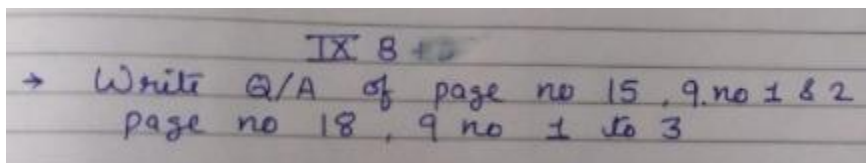 IX 8
→ Write Q/A of page no 15, q.no 1 & 2
page no 18, q no 1 to 3